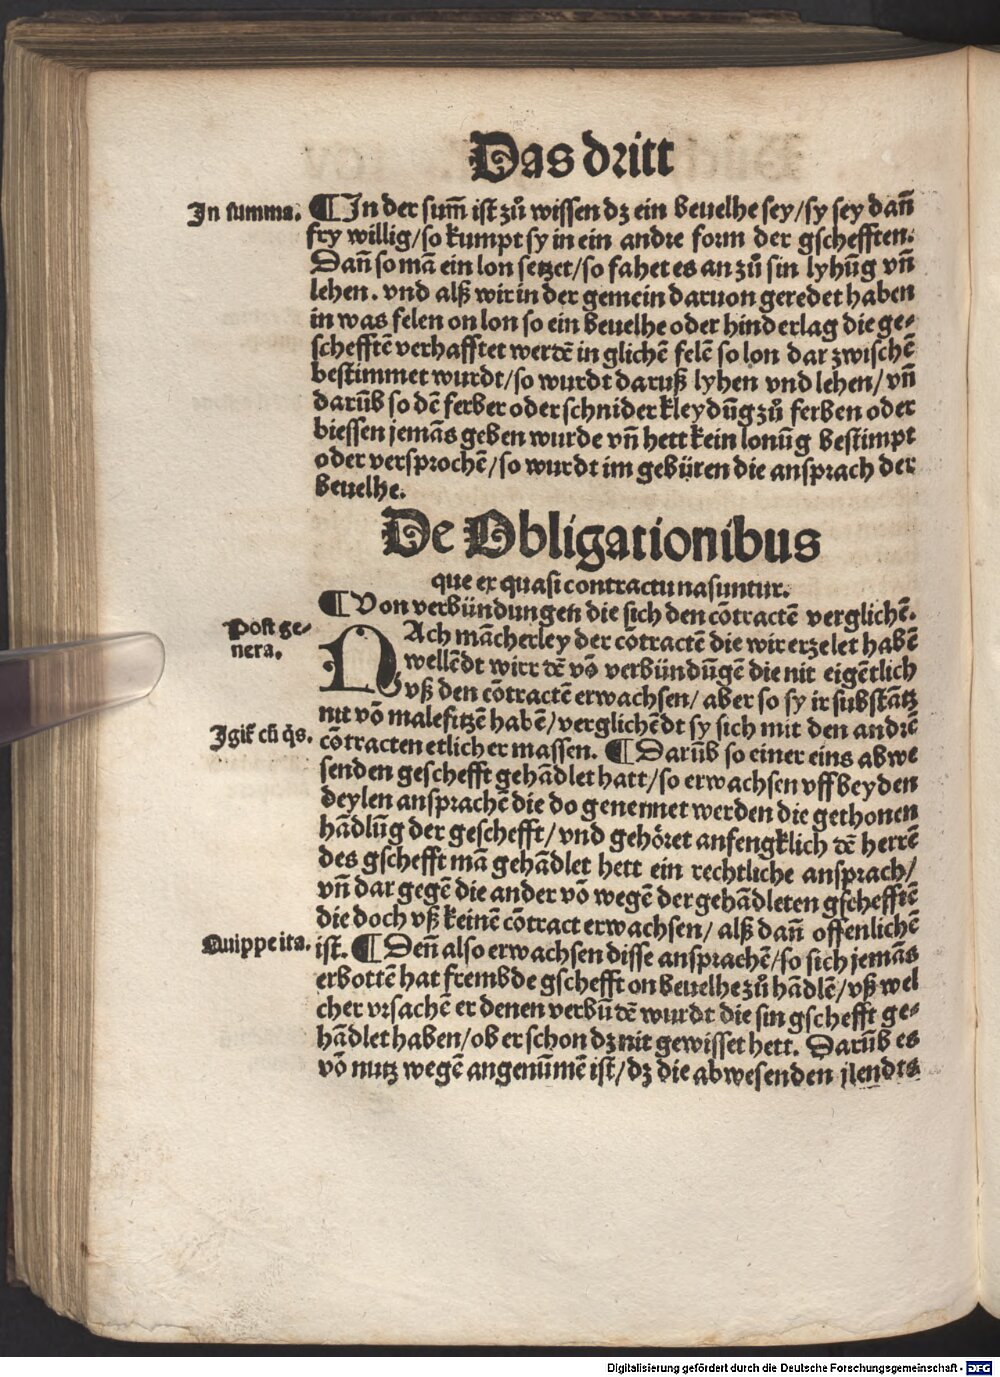 Das dritt
In summa.
¶ In der sum̄ ist zů wissen dz ein beuelhe sey/sy sey dañ
fry willig/so kumpt sy in ein andre form der gschefften.
Dañ so mā ein lon setzet/so fahet es an zů sin lyhūg vñ
lehen. vnd alß wir in der gemein daruon geredet haben
in was felen on lon so ein beuelhe oder hinderlag die ge⸗
schefftē verhafftet werdē in glichē felē so lon dar zwischē
bestimmet wurdt/so wurdt daruß lyhen vnd lehen/vñ
darūb so dē ferber oder schnider kleydūg zů ferben oder
biessen jemās geben wurde vñ hett kein lonūg bestimpt
oder versprochē/so wurdt im gebüren die ansprach der
beuelhe.
De Obligationibus
que ex quasi contractu nasuntur.
¶ Von verbündungen die sich den cōtractē verglichē.
Post ge⸗
nera.
NAch mācherley der cōtractē die wir erzelet habē
wellēdt wir rdē vō verbündūgē die nit eigētlich
vß den cōtractē erwachsen/aber so sy ir substātz
nit vō malefitzē habē/verglichēdt sy sich mit den andrē
Igit᷑ cū q̄s.
cōtracten etlicher massen. ¶ Darūb so einer eins abwe
senden geschefft gehādlet hatt/so erwachsen vff beyden
deylen ansprachē die do genennet werden die gethonen
hādlūg der geschefft/vnd gehöret anfengklich dē herrē
des gschefft mā gehādlet hett ein rechtliche ansprach/
vñ dar gegē die ander vō wegē der gehādleten gschefftē
die doch vß keinē cōtract erwachsen/alß dañ offenlichē
Quippe ita.
ist. ¶ Deñ also erwachsen disse ansprachē/so sich jemās
erbottē hat frembde gschefft on beuelhe zů hādlē/vß wel
cher vrsachē er denen verbūdē wurdt die sin gschefft ge⸗
hādlet haben/ob er schon dz nit gewisset hett. Darūb es
vō nutz wegē angenūmē ist/dz die abwesenden jlendts
Digitalisierung gefördert durch die Deutsche Forschungsgemeinschaft - DFG